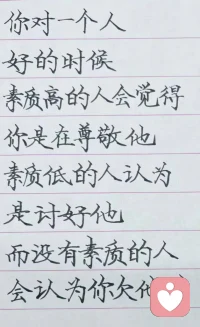 你对一个人
好的时候
素质高的人会觉得
你是在尊敬他
素质低的人认为
是讨好他
而没有素质的人
会认为你欠他